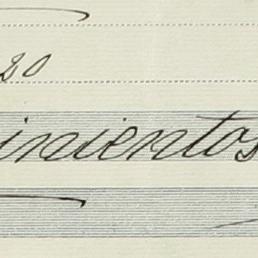 20
inientos